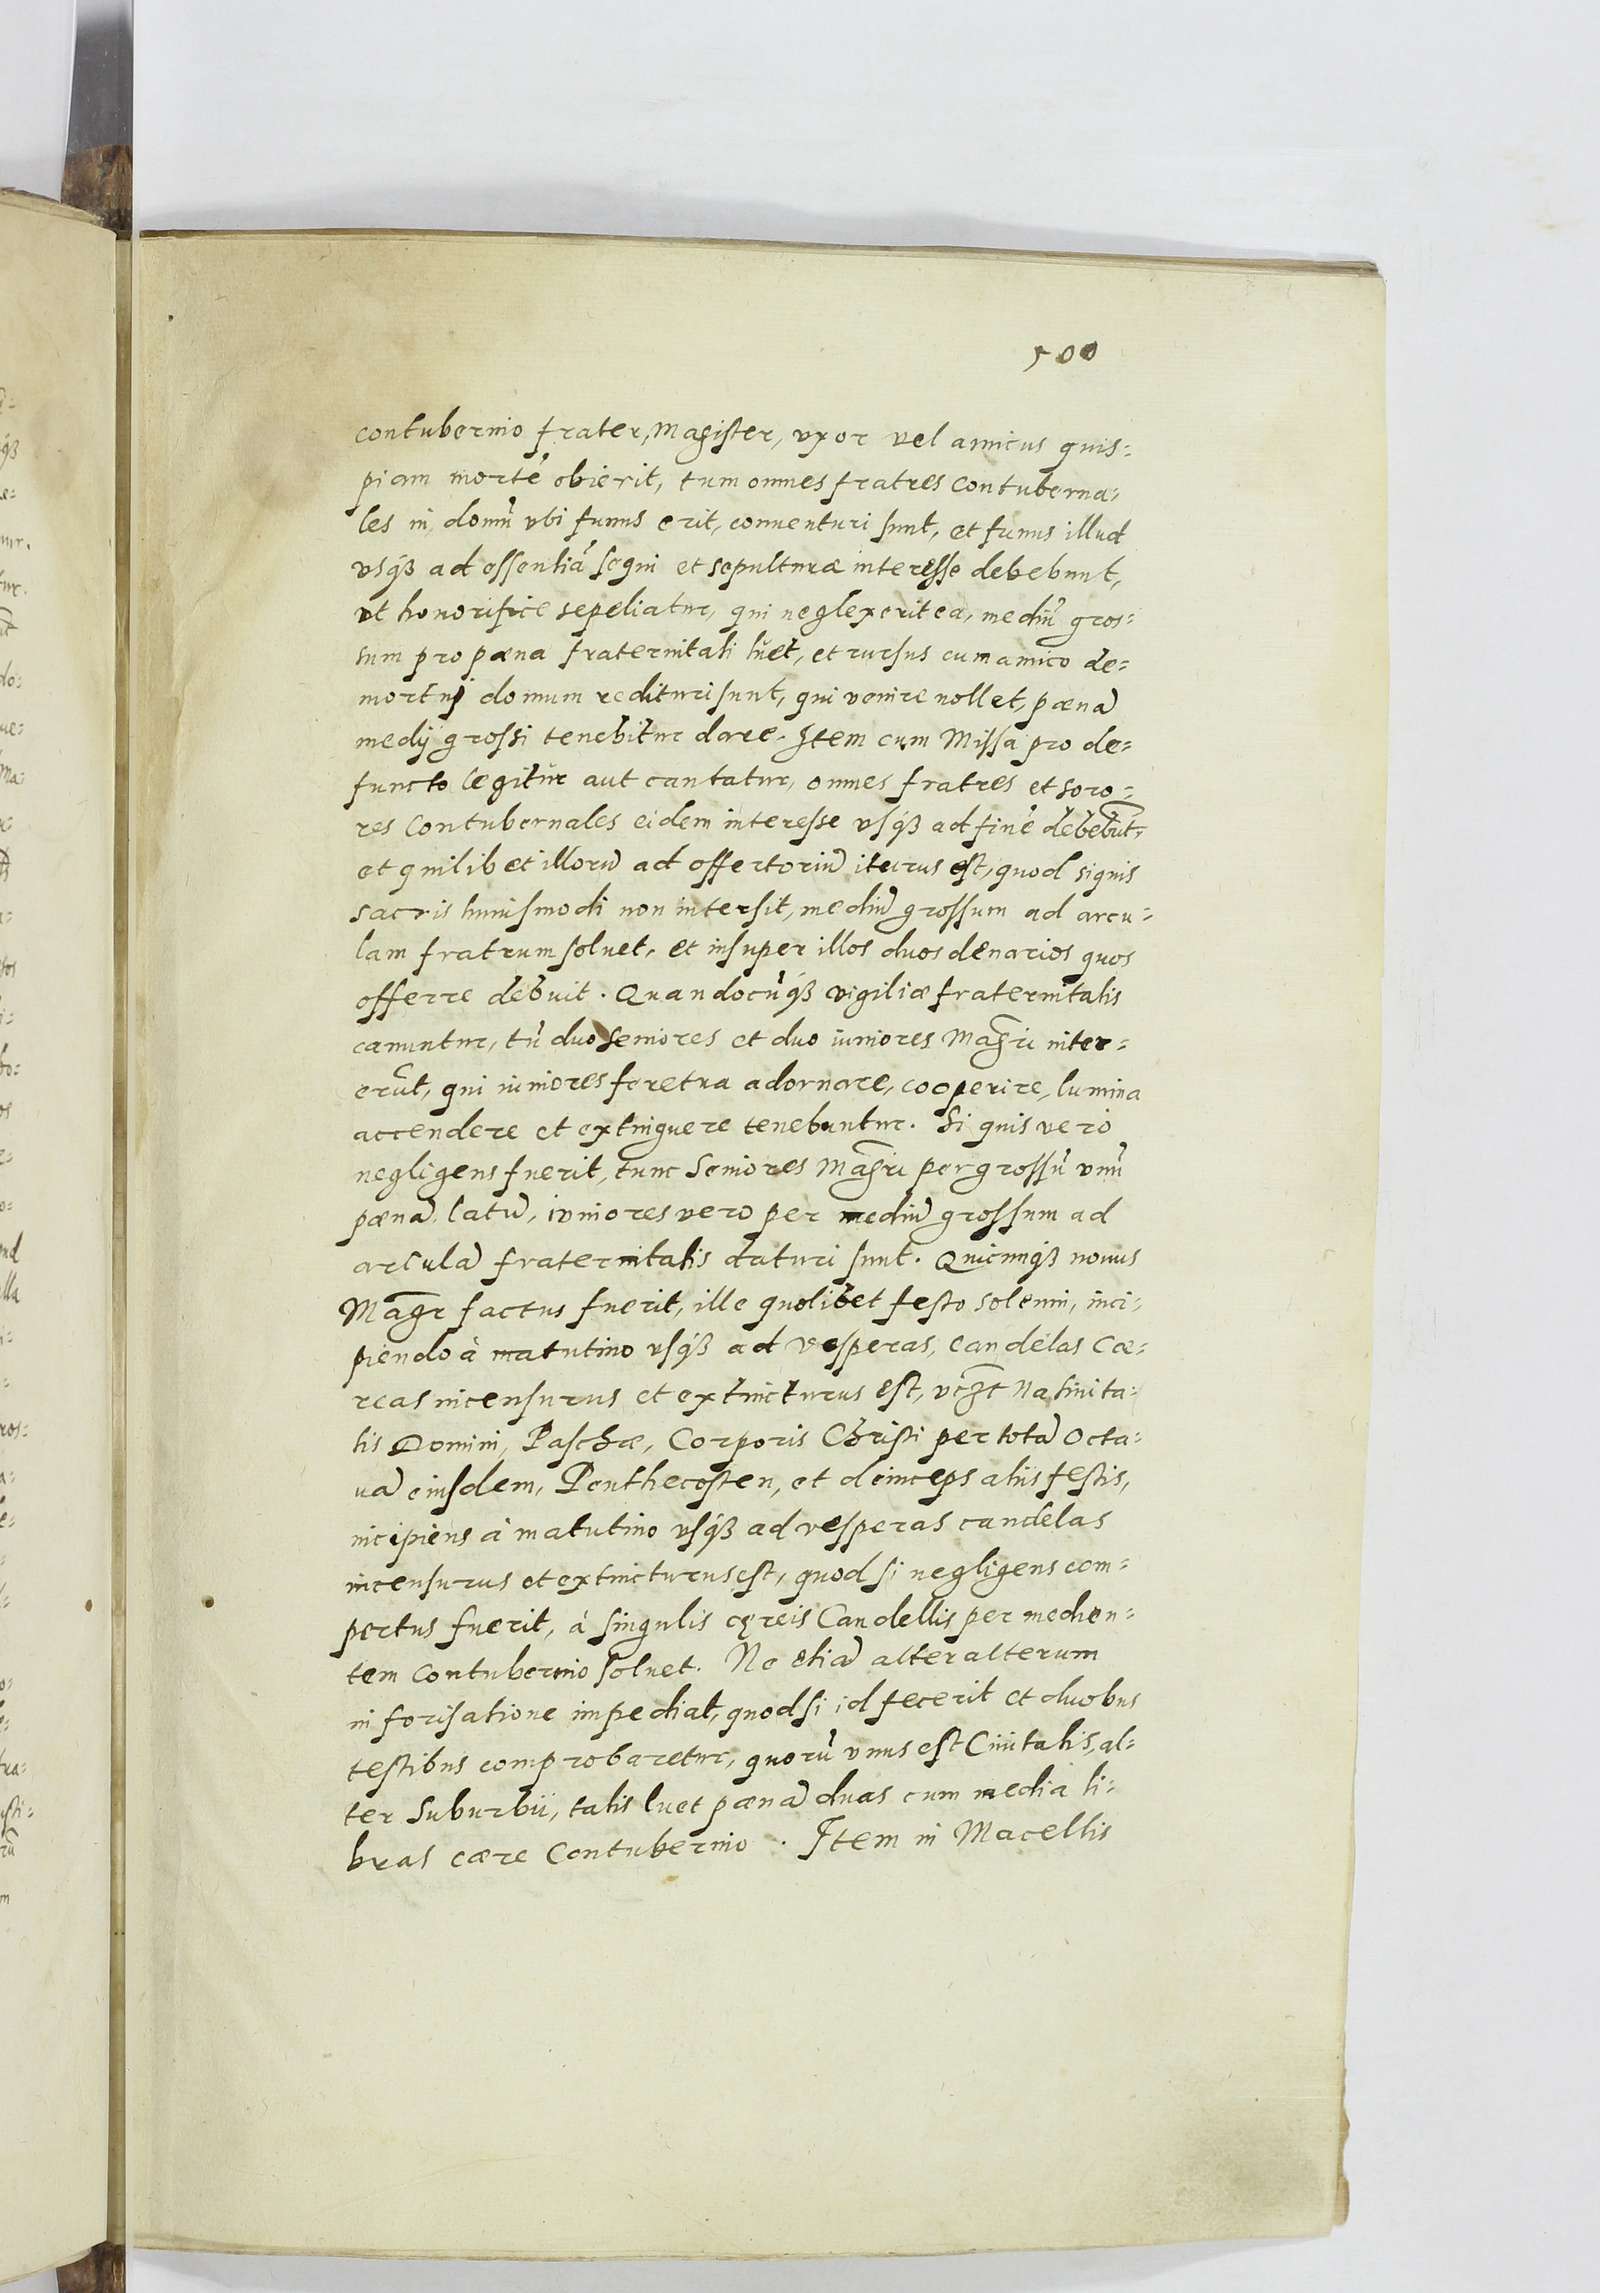 500
contubernio frater, Magister, vxor vel amicus quis=
piam mortē obierit, tum omnes fratres contuberna=
les in domū vbi funus erit, conuenturi sunt, et funus illud
vsqꝫ ad essentiā sequi et sepulturæ interesse debebunt,
vt honorifice sepeliatur, qui neglexerit ea, mediū gros=
sum pro pæna fraternitati luet, et rursus cum amico de=
mortui domum redituri sunt, qui venire nollet, pænā
medij grossi tenebitur dare. Item cum Missa pro de=
functo legitur aut cantatur, omnes fratres et soro=
res Contubernales eidem interesse vsqꝫ ad finē debebūt,
et quilibet illorū ad offertoriū iturus est, quod si quis
sacris huiusmodi non intersit, mediū grossum ad arcu=
lam fratrum soluet, et insuper illos duos denarios quos
offerre debuit. Quandocūqꝫ vigiliæ fraternitatis
canuntur, tū duo seniores et duo iuniores Magri inter=
erūt, qui iuniores feretra adornare, cooperire, lumina
accendere et extinguere tenebuntur. Si quis vero
negligens fuerit, tunc Seniores Magri per grossū vnū
pænā latū, iuniores vero per mediū grossum ad
arculā fraternitatis daturi sunt. Quicunqꝫ nouus
Magr factus fuerit, ille quolibet festo solemni, inci=
piendo à matutino vsqꝫ ad vesperas, candelas cæ=
reas incensurus et extincturus est, vczt Natiuita=
tis Domini, Paschæ, Corporis Christi per totā Octa=
uā eiusdem, Penthecosten, et deinceps aliis festis,
incipiens à matutino vsqꝫ ad vesperas candelas
incensurus et extincturus est, quod si negligens com=
pertus fuerit, à singulis cęreis Candellis per medien=
tem contubernio soluet. Ne etiā alter alterum
in forisatione impediat, quod si id fecerit et duobus
testibus comprobaretur, quorū vnus est Ciuitatis, al=
ter Suburbii, talis luet pænā duas cum media li=
bras cære Contubernio. Item in Macellis